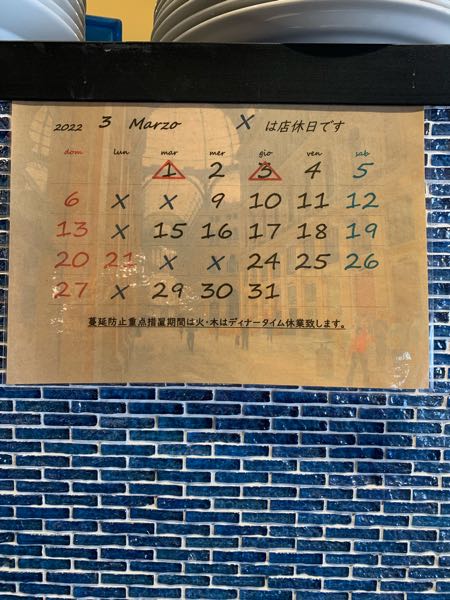 2022 3 Marzo X は店休日です
dom lun mar mer gio ven sab
1 2 3 4 5
6 X X 9 10 11 12
13 X 15 16 17 18 19
20 21 X X 24 25 26
27 X 29 30 31
蔓延防止重点措置期間は火・木はディナータイム休業致します。